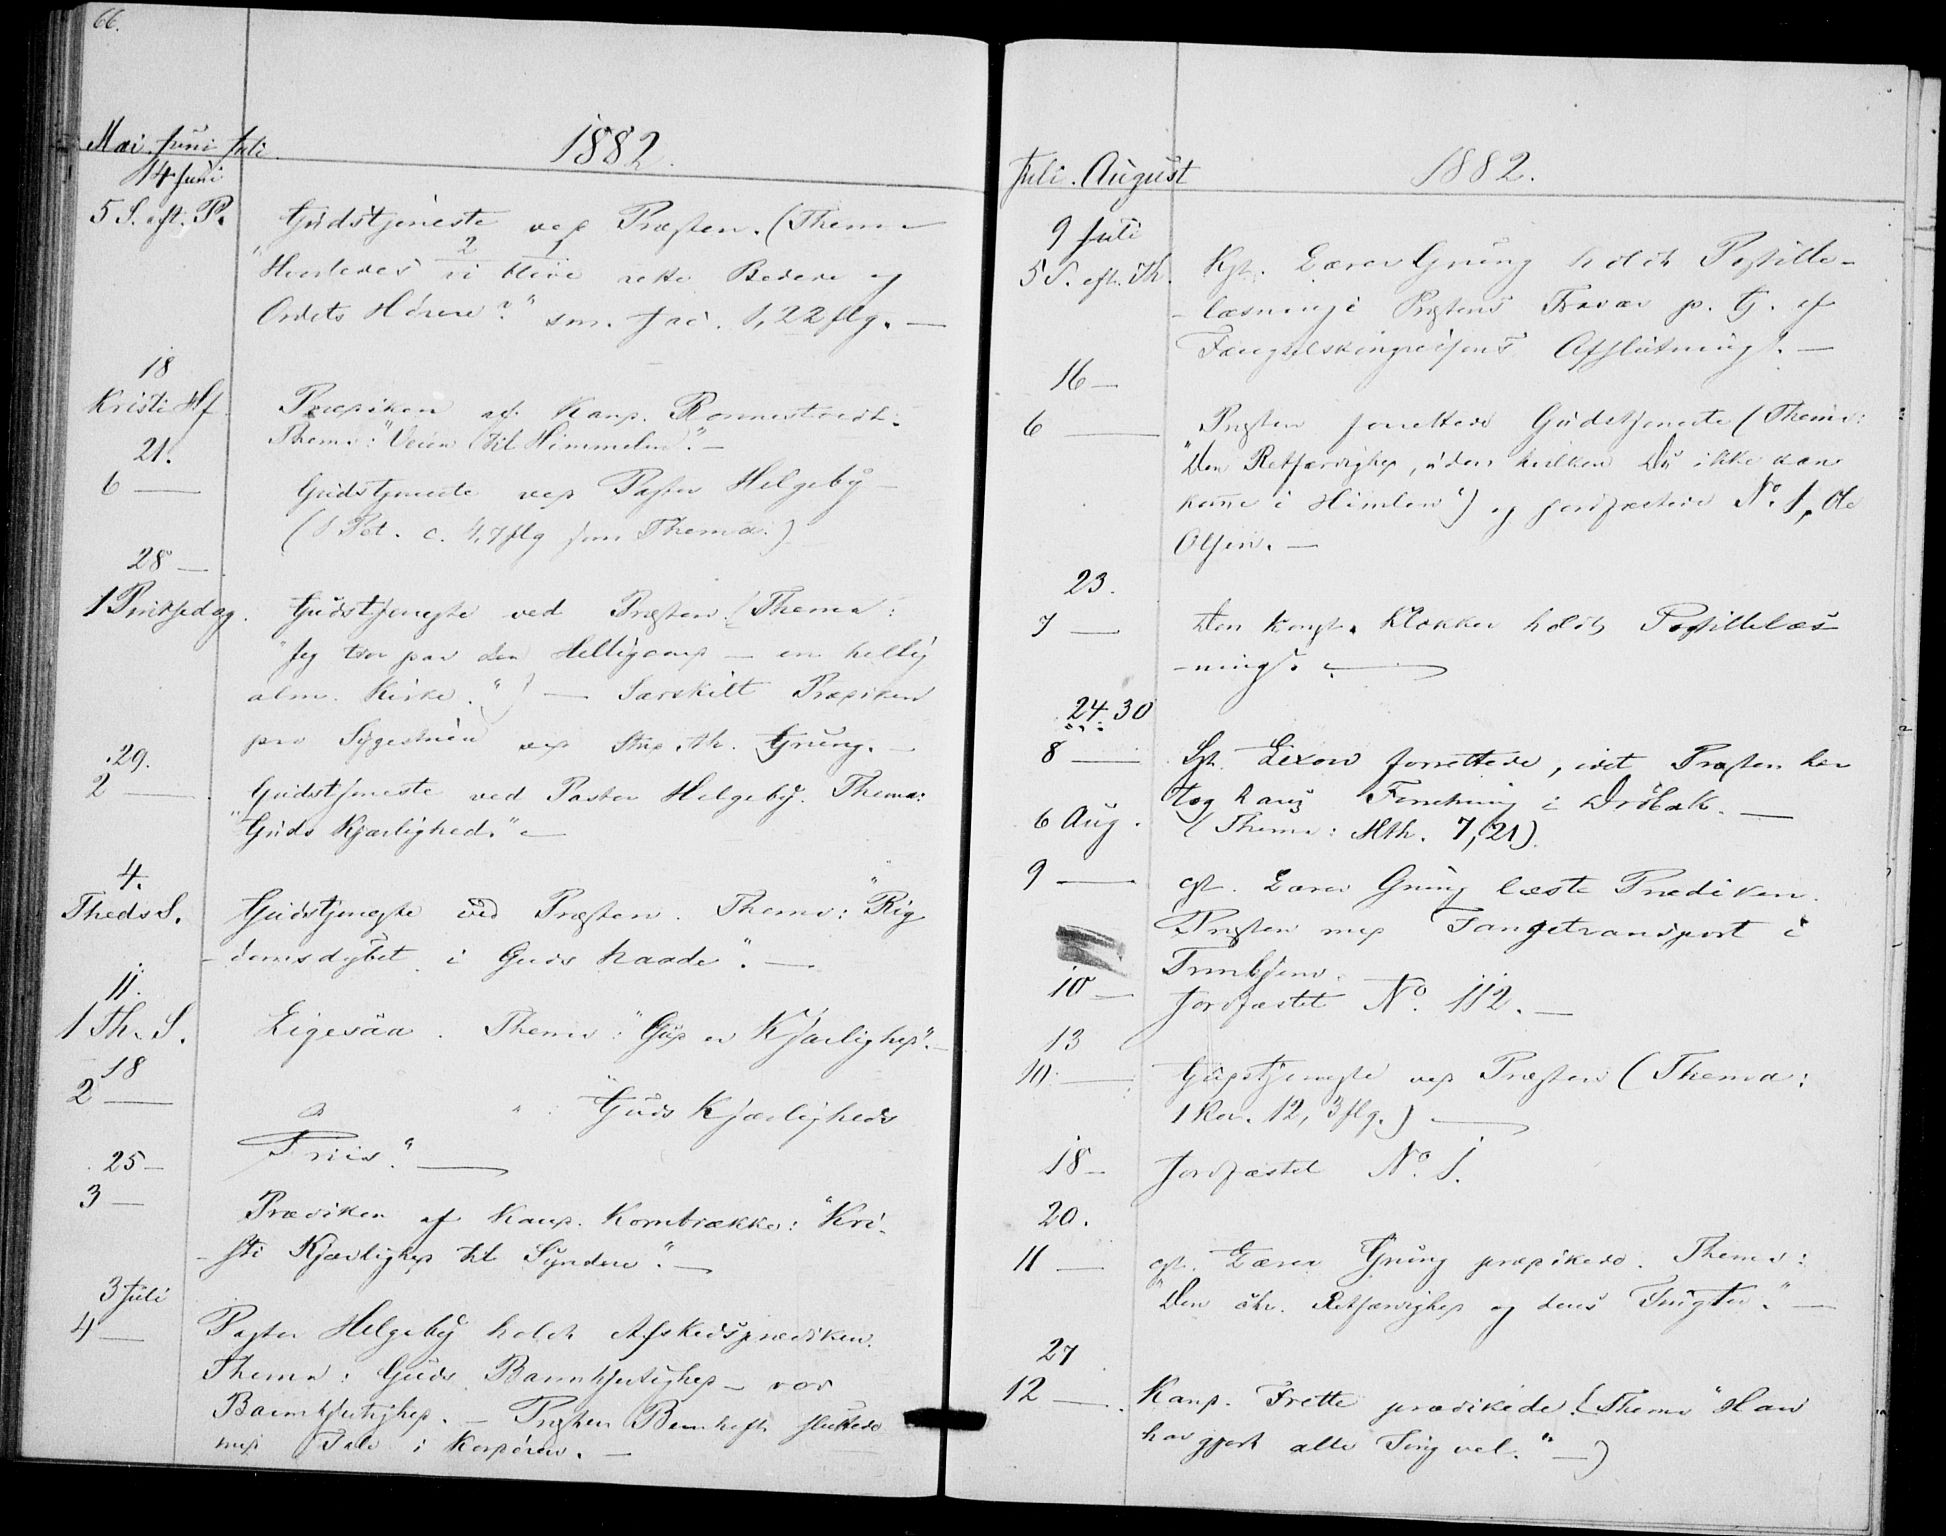 66.
Mai. Juni Juli.
1882.
14 Juni
5 S. eft. P. Gudstjeneste ved Præsten. (Thema
"Hvorledes vi blive rette Bedere og
Ordets Hörere?" sm. Jac. 1,22 flg. —
18
Kristi Hf. Prædiken af Kand.
Thema: "Veien til Himmelen". —
21.
6 — Gudstjeneste ved Pastor Helgeby —
(1 Pet. c. 4,7 flg som Thema.)
28 —
1 Pintsedag. Gudstjeneste ved Præsten. (Thema:
"Jeg tror paa den Helligaand — en hellig
alm. Kirke.") — Særskilt Prædiken
paa Sygestuen ved Stud. th. Grung. —
29.
2 — Gudstjeneste ved Pastor Helgeby. Thema:
"Guds Kjærlighed." —
4.
Threds S. Gudstjeneste ved Præsten. Thema: "Rig
-domsdybet i Guds Naade". —
11.
1 Th. S. Ligesaa. Thema: "Gud er Kjærlighed". —
18
2 — " "Guds Kjærligheds
Priis." —
25 —
3 — Prædiken af Kand. Kornbrække: "Kri-
-sti Kjærlighed til Syndere". —
3 Juli
4 — Pastor Helgeby holdt Afskedsprædiken.
Thema: Guds Barmhjertighed — vor
Barmhjertighed. — Præsten sluttede
med Tale i Kordören. —
Juli. August
1882.
9 Juli
5 S. eft. Th. Kst. Lærer Grung holdt Postille-
-læsning i Præstens Fravær p. G. af
Fængselskongressens Afslutning. —
16 —
6 — Præsten forrettede Gudstjeneste (Thema:
"Den Retfærdighed, uden hvilken Du ikke kan
komme i Himlen") og jordfæstede No. 1, Ole
Olsen. —
23.
7 — Den konst. Klokker holdt Postillelæs
-ning. —
24. 30
8 — Sgt. Lexow forrettede, idet Præsten her
tog hans Forretning i Dröbak. —
6 Aug. (Thema: Mth. 7, 21).
9 — cst. Lærer Grung læste Prædiken.
Præsten med Fangetransport i
Trondhjem.
10 — Jordfæstet No. 112. —
13
10 — Gudstjeneste ved Præsten (Thema:
1 Kor. 12, 3 flg.) —
18 — Jordfæstet No. 1.
20.
11 — cst. Lærer Grung prædikede. Thema:
"Den chr. Retfærdighed og dens Frugter." —
27
12 — Kand. Frette prædikede. (Thema "Han
har gjort alle Ting vel." —)